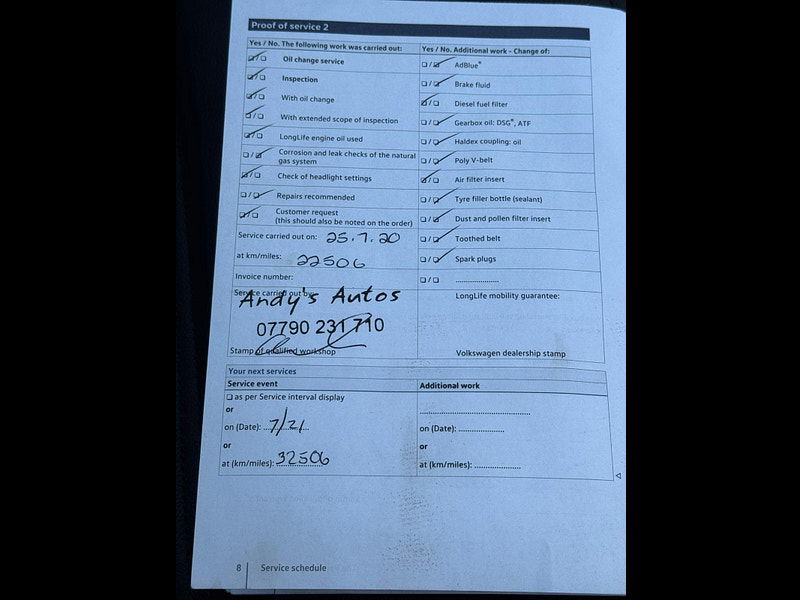 Proof of service 2
Yes / No. The following work was carried out:
Oil change service
Inspection
With oil change
With extended scope of inspection
LongLife engine oil used
Corrosion and leak checks of the natural
gas system
Check of headlight settings
Repairs recommended
Customer request
(this should also be noted on the order)
Service carried out on: 25.7.20
at km/miles: 22506
Invoice number:
Service carried out by:
Andy's Autos
07790 231 710
Stamp of qualified workshop
Yes / No. Additional work - Change of:
AdBlue®
Brake fluid
Diesel fuel filter
Gearbox oil: DSG®, ATF
Haldex coupling: oil
Poly V-belt
Air filter insert
Tyre filler bottle (sealant)
Dust and pollen filter insert
Toothed belt
Spark plugs
LongLife mobility guarantee:
Volkswagen dealership stamp
Your next services
Service event
as per Service interval display
or
on (Date): 7/21
or
at (km/miles): 32506
Additional work
on (Date):
or
at (km/miles):
8 Service schedule